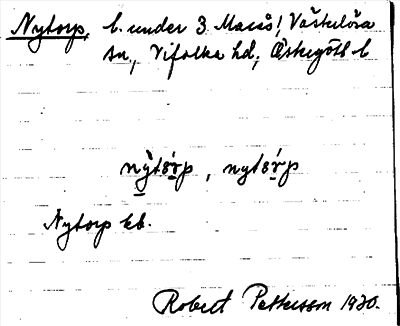 Nytorp, l. under 3 Maca! Västerlösa
sn., Vifolka hd, Östergötl. l.
nytorp, nytorp
Nytorp kb.
Robert Pettersson 1930.